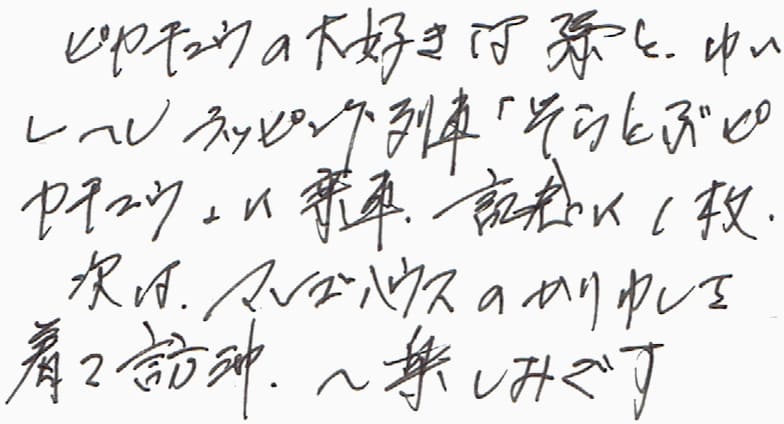 ピカチュウの大好きな孫と、ゆい
レールラッピング列車「そらとぶピ
カチュウ」に乗車。記念に1枚。
次は、マンゴハウスのかりゆしを
着て訪沖。〜楽しみです